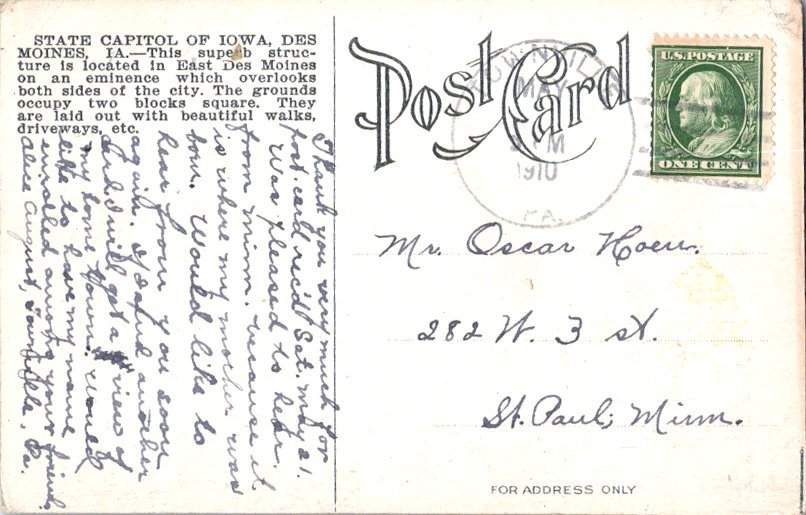 STATE CAPITOL OF IOWA, DES
MOINES, IA.—This superb struc-
ture is located in East Des Moines
on an eminence which overlooks
both sides of the city. The grounds
occupy two blocks square. They
are laid out with beautiful walks,
driveways, etc.
Thank you very much for
post card rec'd Sat. May 21.
Was pleased to hear
from Minn. because it
is where my mother was
born. Would like to
hear from you soon
again. Send another
and I will get a view of
my home town. Would
like to have my name
enrolled among your friends.
August, Pa.
Post Card
MAY
PM
1910
PA.
U.S. POSTAGE
ONE CENT
Mr. Oscar
282 W. 3 st.
St. Paul, Minn.
FOR ADDRESS ONLY